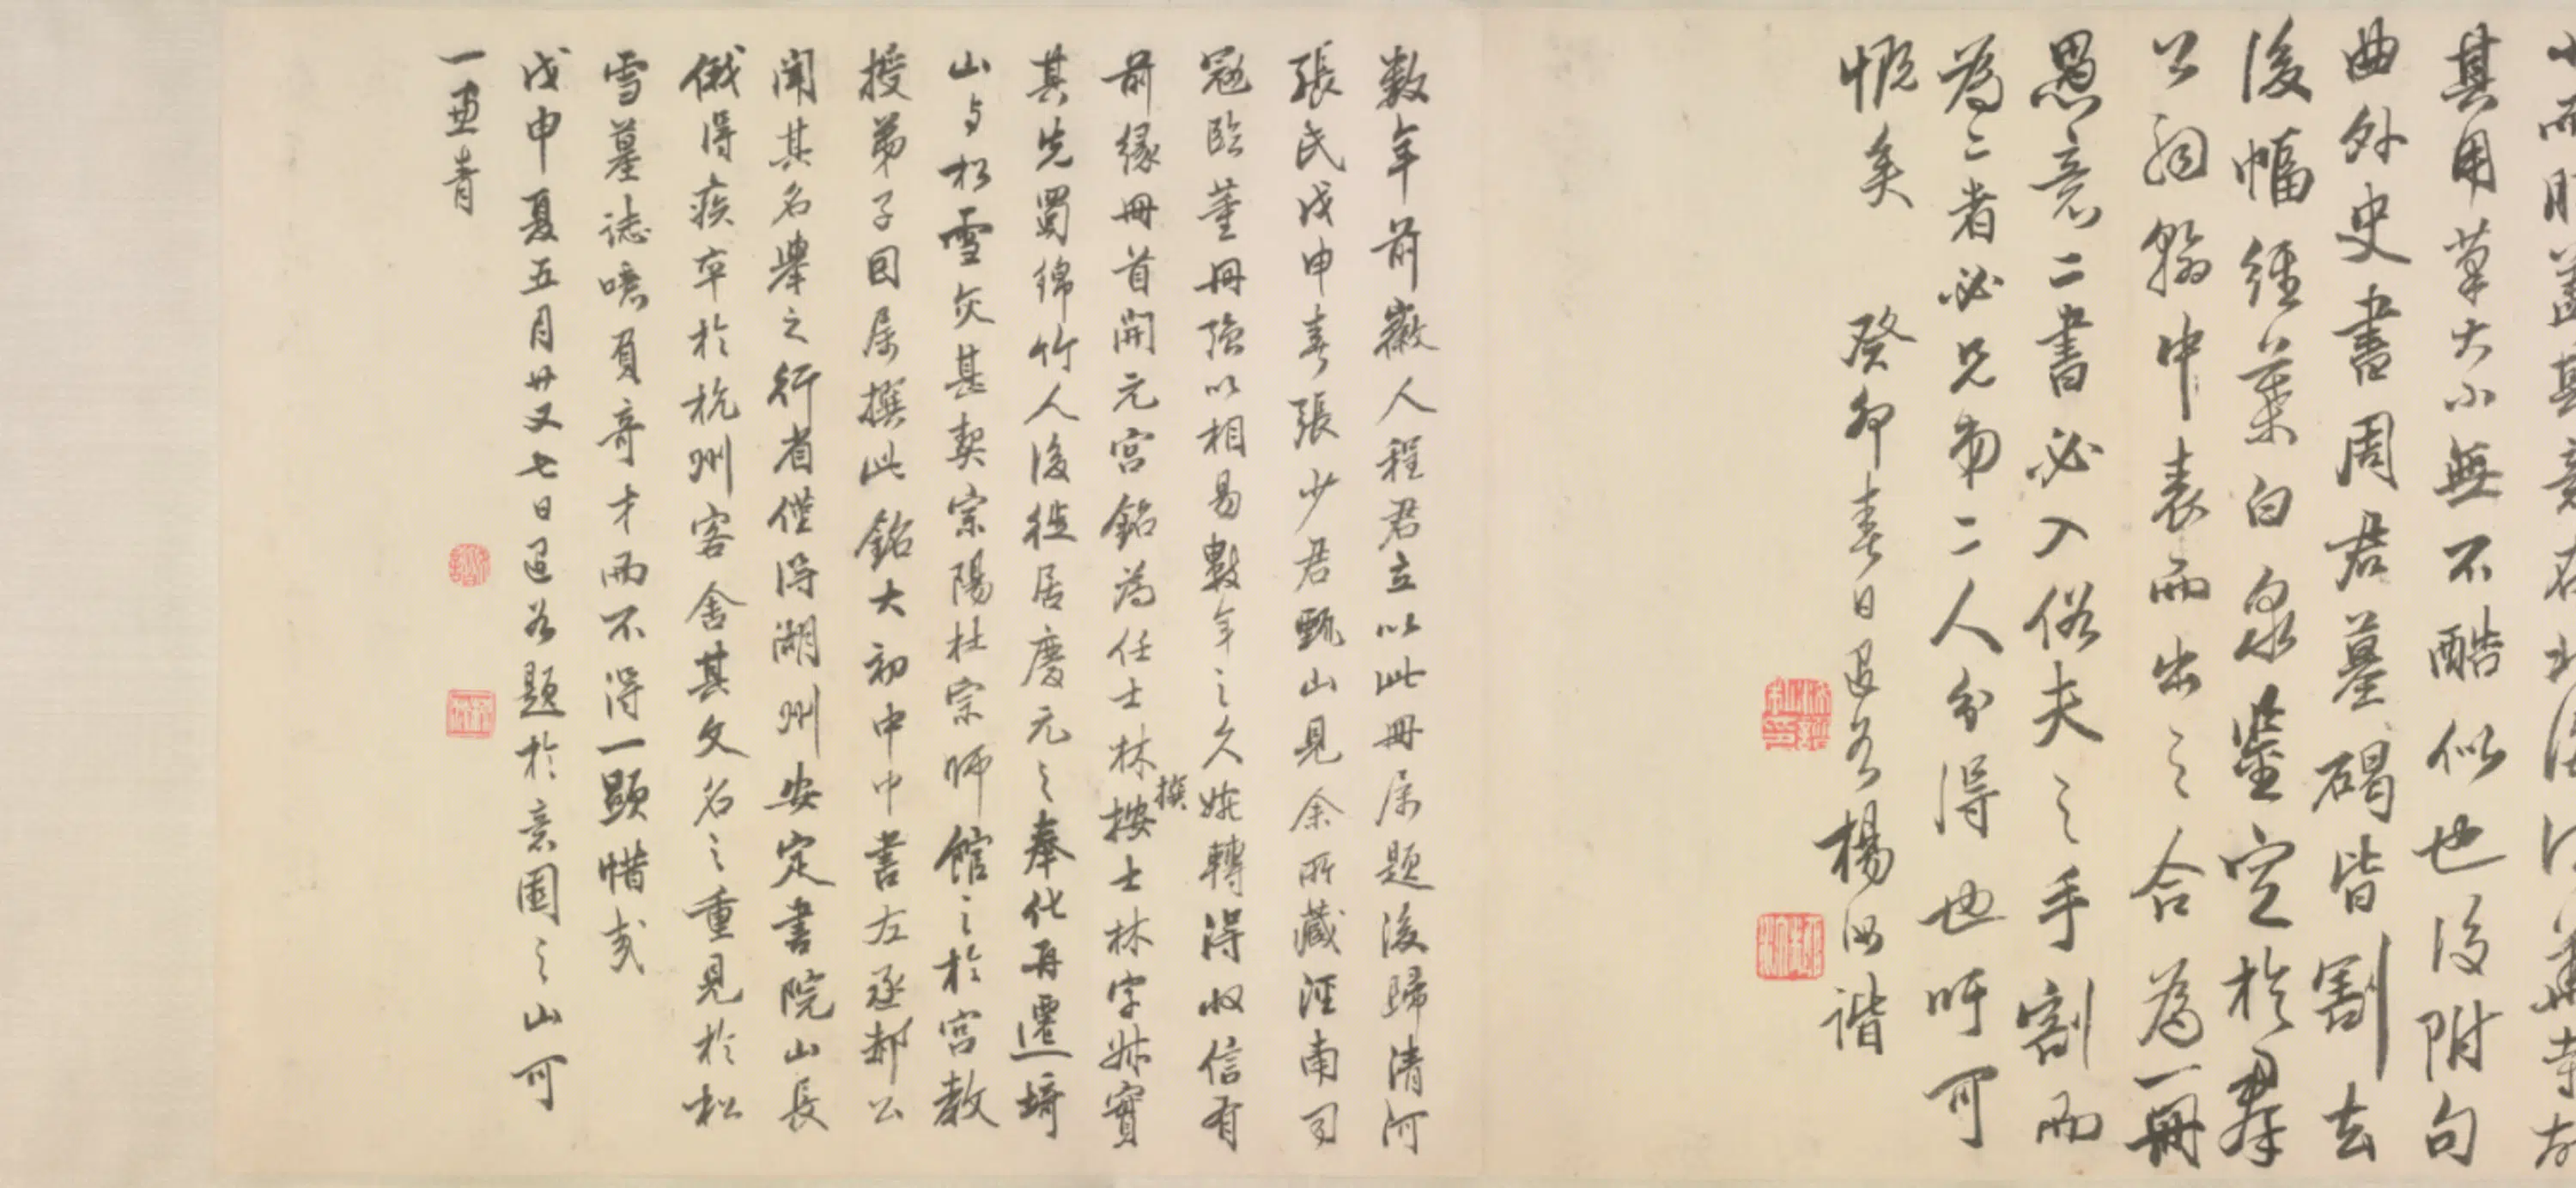 其用草大小無不酷似也後附句
曲外史書周君墓碣皆割去
後幅經葉白泉鑒定於群
公詞翰中表而出之合為一冊
愚意二書必入俗夫之手割而
為二者必兄弟二人分得也吁可
慨矣 癸卯春日退谷楊汝諧
數年前徽人程君立以此冊屬題後歸清河
張氏戊申春張少君甄山見余所藏淫南司
寇臨董冊強以相易數年之久婉轉得收信有
前緣冊首開元宮銘為任士林撰按士林字叔實
其先蜀綿竹人後徙居慶元之奉化再遷埼
山與松雪交甚契宗陽杜宗師館之於宮教
授弟子因屬撰此銘大初中中書左丞郝公
聞其名舉之行省僅得湖州安定書院山長
俄得疾卒於杭州客舍其文名之重見於松
雪墓誌噫負奇才而不得一顯惜哉
戊申夏五月廿又七日退谷題於意園之山可
一畫青